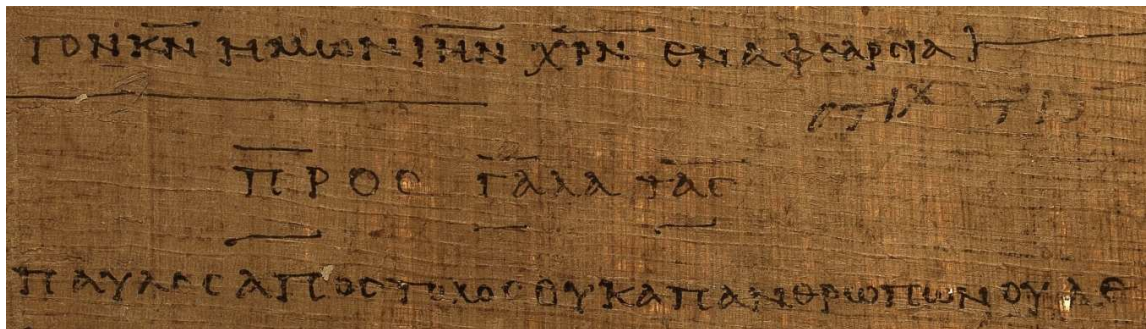 ΤΟΝ Κ̅Ν̅ ΗΜΩΝ Ι̅Η̅Ν̅ Χ̅Ρ̅Ν̅ ΕΝ ΑΦΘΑΡϹΙΑ
ϹΤΙΧ ΤΙϚ
ΠΡΟϹ ΓΑΛΑΤΑϹ
ΠΑΥΛΟϹ ΑΠΟϹΤΟΛΟϹ ΟΥΚ ΑΠ ΑΝΘΡΩΠΩΝ ΟΥΔΕ